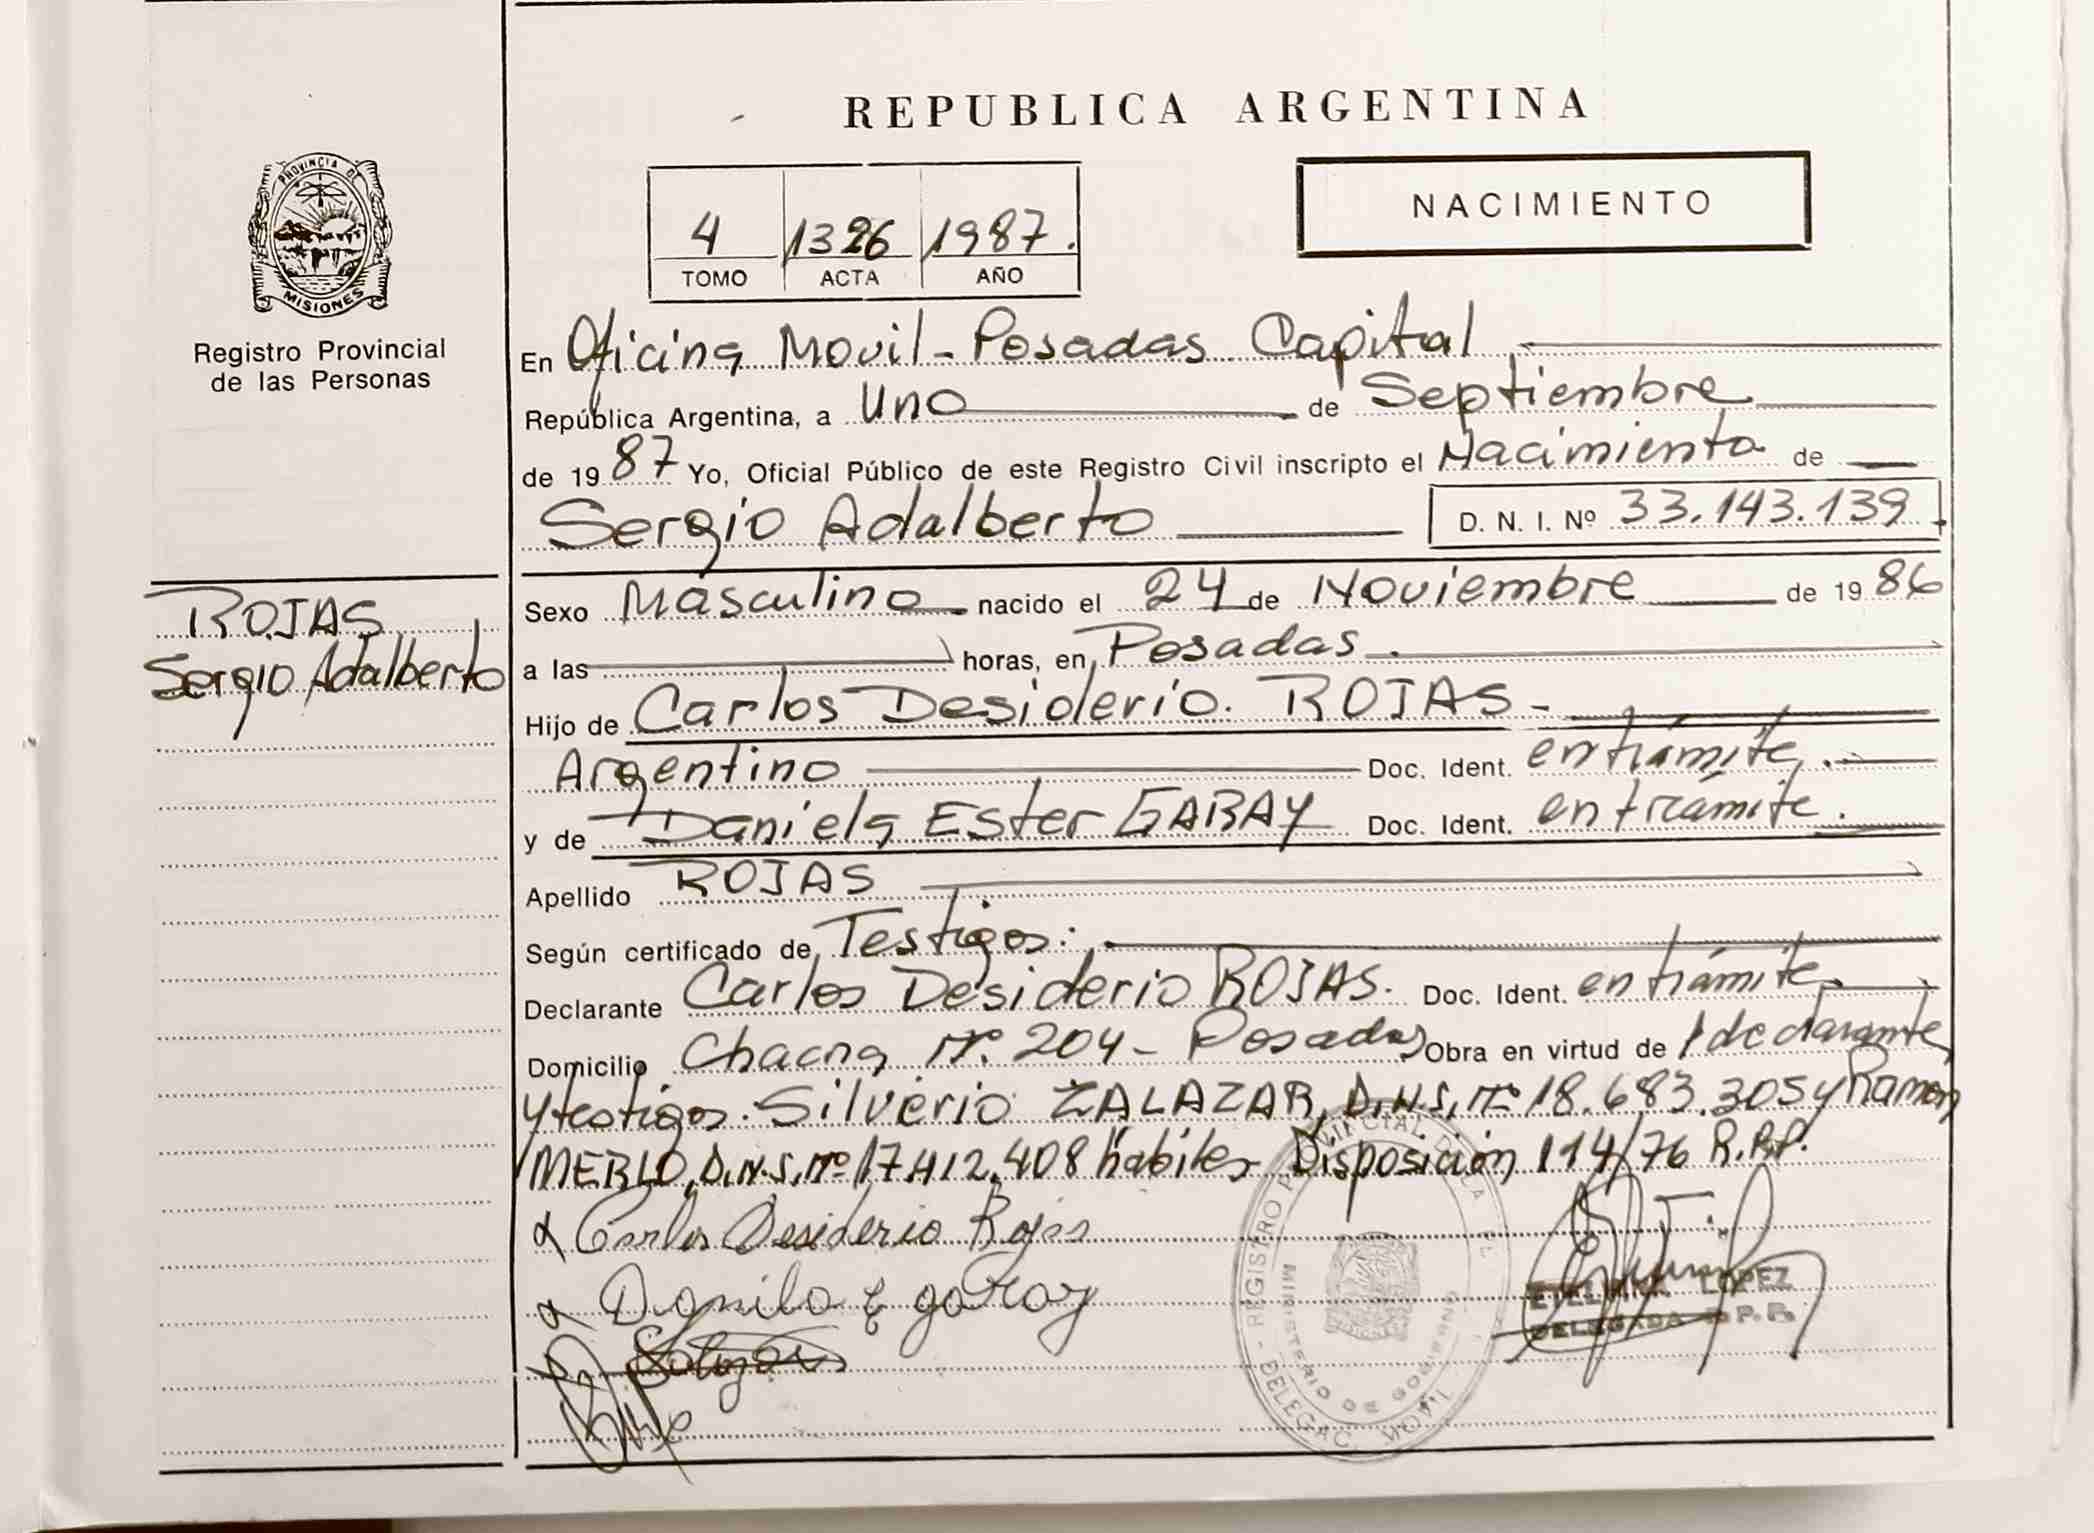 REPUBLICA ARGENTINA
PROVINCIA DE
MISIONES
Registro Provincial
de las Personas
4 1326 1987.
TOMO ACTA AÑO
NACIMIENTO
En Oficina Movil - Posadas Capital
República Argentina, a Uno de Septiembre
de 1987 Yo, Oficial Público de este Registro Civil inscripto el Nacimiento de
Sergio Adalberto D. N. I. Nº 33.143.139
ROJAS
Sergio Adalberto
Sexo Masculino nacido el 24 de Noviembre de 1986
a las horas, en Posadas.
Hijo de Carlos Desiderio. ROJAS -
Argentino Doc. Ident. en trámite.
y de Daniela Ester GARAY Doc. Ident. en trámite.
Apellido ROJAS
Según certificado de Testigos:
Declarante Carlos Desiderio ROJAS. Doc. Ident. en trámite
Domicilio Chacra Nº. 204 - Posadas Obra en virtud de / declarante
y testigos. Silverio ZALAZAR, D.N.I. Nº 18.683.305 y Ramón
MERLO, D.N.I. Nº 17.412.408 hábiles Disposición 114/76 R.P.P.
Carlos Desiderio Rojas
Daniela E garay
LOPEZ
DELEGADA R.P.P.
REGISTRO
MINISTERIO DE GOBIERNO